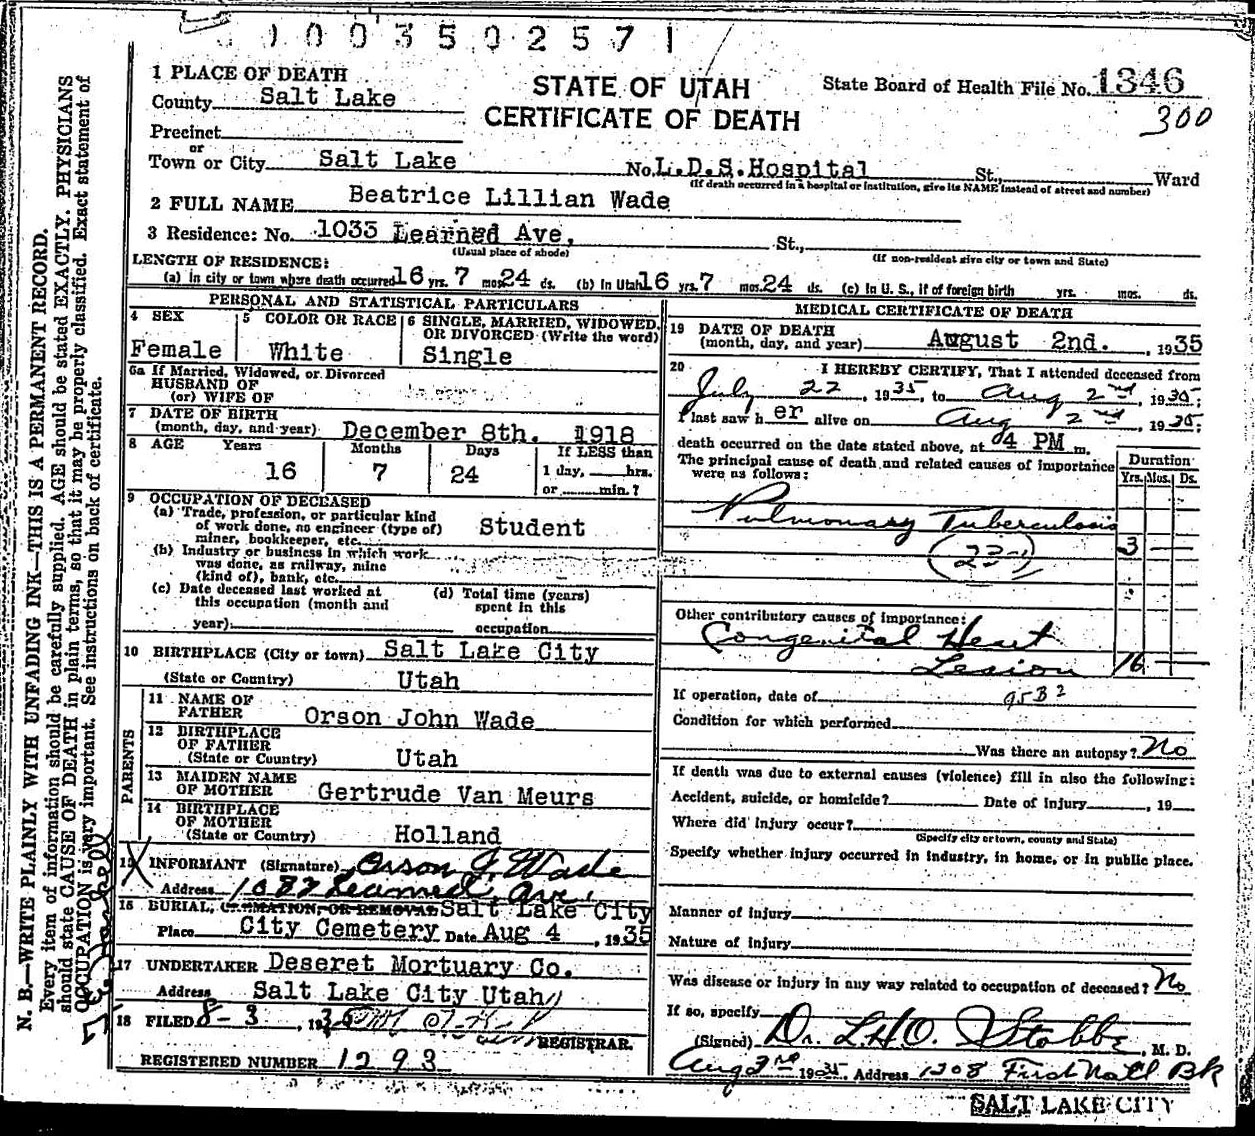 1003502571
1 PLACE OF DEATH
STATE OF UTAH
CERTIFICATE OF DEATH
State Board of Health File No. 1346
300
County Salt Lake
Precinct
or
Town or City Salt Lake No. L.D.S. Hospital St., Ward
(If death occurred in a hospital or institution, give its NAME instead of street and number)
2 FULL NAME Beatrice Lillian Wade
3 Residence: No. 1033 Learned Ave, St.,
(Usual place of abode) (If non-resident give city or town and State)
LENGTH OF RESIDENCE:
(a) In city or town where death occurred 16 yrs. 7 mos. 24 ds. (b) In Utah 16 yrs. 7 mos. 24 ds. (c) In U. S., if of foreign birth yrs. mos. ds.
PERSONAL AND STATISTICAL PARTICULARS
4 SEX
Female
5 COLOR OR RACE
White
6 SINGLE, MARRIED, WIDOWED, OR DIVORCED (Write the word)
Single
6a If Married, Widowed, or Divorced
HUSBAND OF
(or) WIFE OF
7 DATE OF BIRTH
(month, day, and year) December 8th. 1918
8 AGE Years Months Days If LESS than
16 7 24 1 day, hrs.
or min.?
9 OCCUPATION OF DECEASED
(a) Trade, profession, or particular kind
of work done, no engineer (type of)
miner, bookkeeper, etc. Student
(b) Industry or business in which work
was done, as railway, mine
(kind of), bank, etc.
(c) Date deceased last worked at
this occupation (month and
year):
(d) Total time (years)
spent in this
occupation
10 BIRTHPLACE (City or town) Salt Lake City
(State or Country) Utah
PARENTS
11 NAME OF
FATHER Orson John Wade
12 BIRTHPLACE
OF FATHER
(State or Country) Utah
13 MAIDEN NAME
OF MOTHER Gertrude Van Meurs
14 BIRTHPLACE
OF MOTHER
(State or Country) Holland
15 INFORMANT (Signature) Orson J. Wade
Address Learned Ave.
16 BURIAL, CREMATION, OR REMOVAL Salt Lake City
Place City Cemetery Date Aug 4, 1935
17 UNDERTAKER Deseret Mortuary Co.
Address Salt Lake City Utah
18 FILED 8-3, 1935
REGISTRAR.
REGISTERED NUMBER 1293
MEDICAL CERTIFICATE OF DEATH
19 DATE OF DEATH
(month, day, and year) August 2nd., 1935
20 I HEREBY CERTIFY, That I attended deceased from
July 22, 1935, to Aug 2nd, 1935;
I last saw h er alive on Aug 2nd, 1935;
death occurred on the date stated above, at 4 PM m.
The principal cause of death and related causes of importance
were as follows:
Duration
Yrs. Mos. Ds.
Pulmonary Tuberculosis
(23-1) 3
Other contributory causes of importance:
Congenital Heart
Lesion 16
If operation, date of 95B2
Condition for which performed
Was there an autopsy? No
If death was due to external causes (violence) fill in also the following:
Accident, suicide, or homicide? Date of injury, 19
Where did injury occur?
(Specify city or town, county and State)
Specify whether injury occurred in industry, in home, or in public place.
Manner of Injury
Nature of Injury
Was disease or injury in any way related to occupation of deceased? No
If so, specify
(Signed) Dr. L.H.O. Stobbe, M. D.
Aug 3rd 1935. Address 1208 First Nat'l Bk
SALT LAKE CITY
N. B.—WRITE PLAINLY WITH UNFADING INK—THIS IS A PERMANENT RECORD.
Every item of information should be carefully supplied. AGE should be stated EXACTLY. PHYSICIANS
should state CAUSE OF DEATH in plain terms, so that it may be properly classified. Exact statement of
OCCUPATION is very important. See instructions on back of certificate.